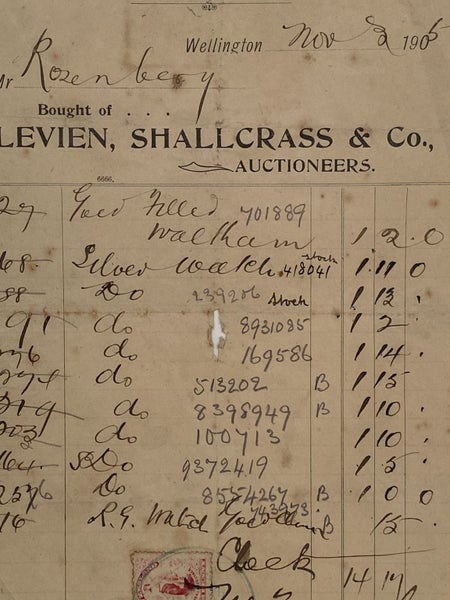 Wellington Nov 3 1905
Mr Rosenberg
Bought of . . .
LEVIEN, SHALLCRASS & Co.,
AUCTIONEERS.
6666.
27 Gold Filled 701889
Waltham 1 2 0
68 Silver Watch stock 418041 1 11 0
88 Do 239206 stock 1 12 .
91 do 8931085 1 2 .
do 169586 1 14 .
274 do 513202 B 1 15
319 do 8398949 B 1 10 .
203 do 100713 1 10 .
164 Do 9372419 1 5 .
Do 8554267 B 1 0 0
16 R.G. Watch 743973 B 15 .
Clock
14 17